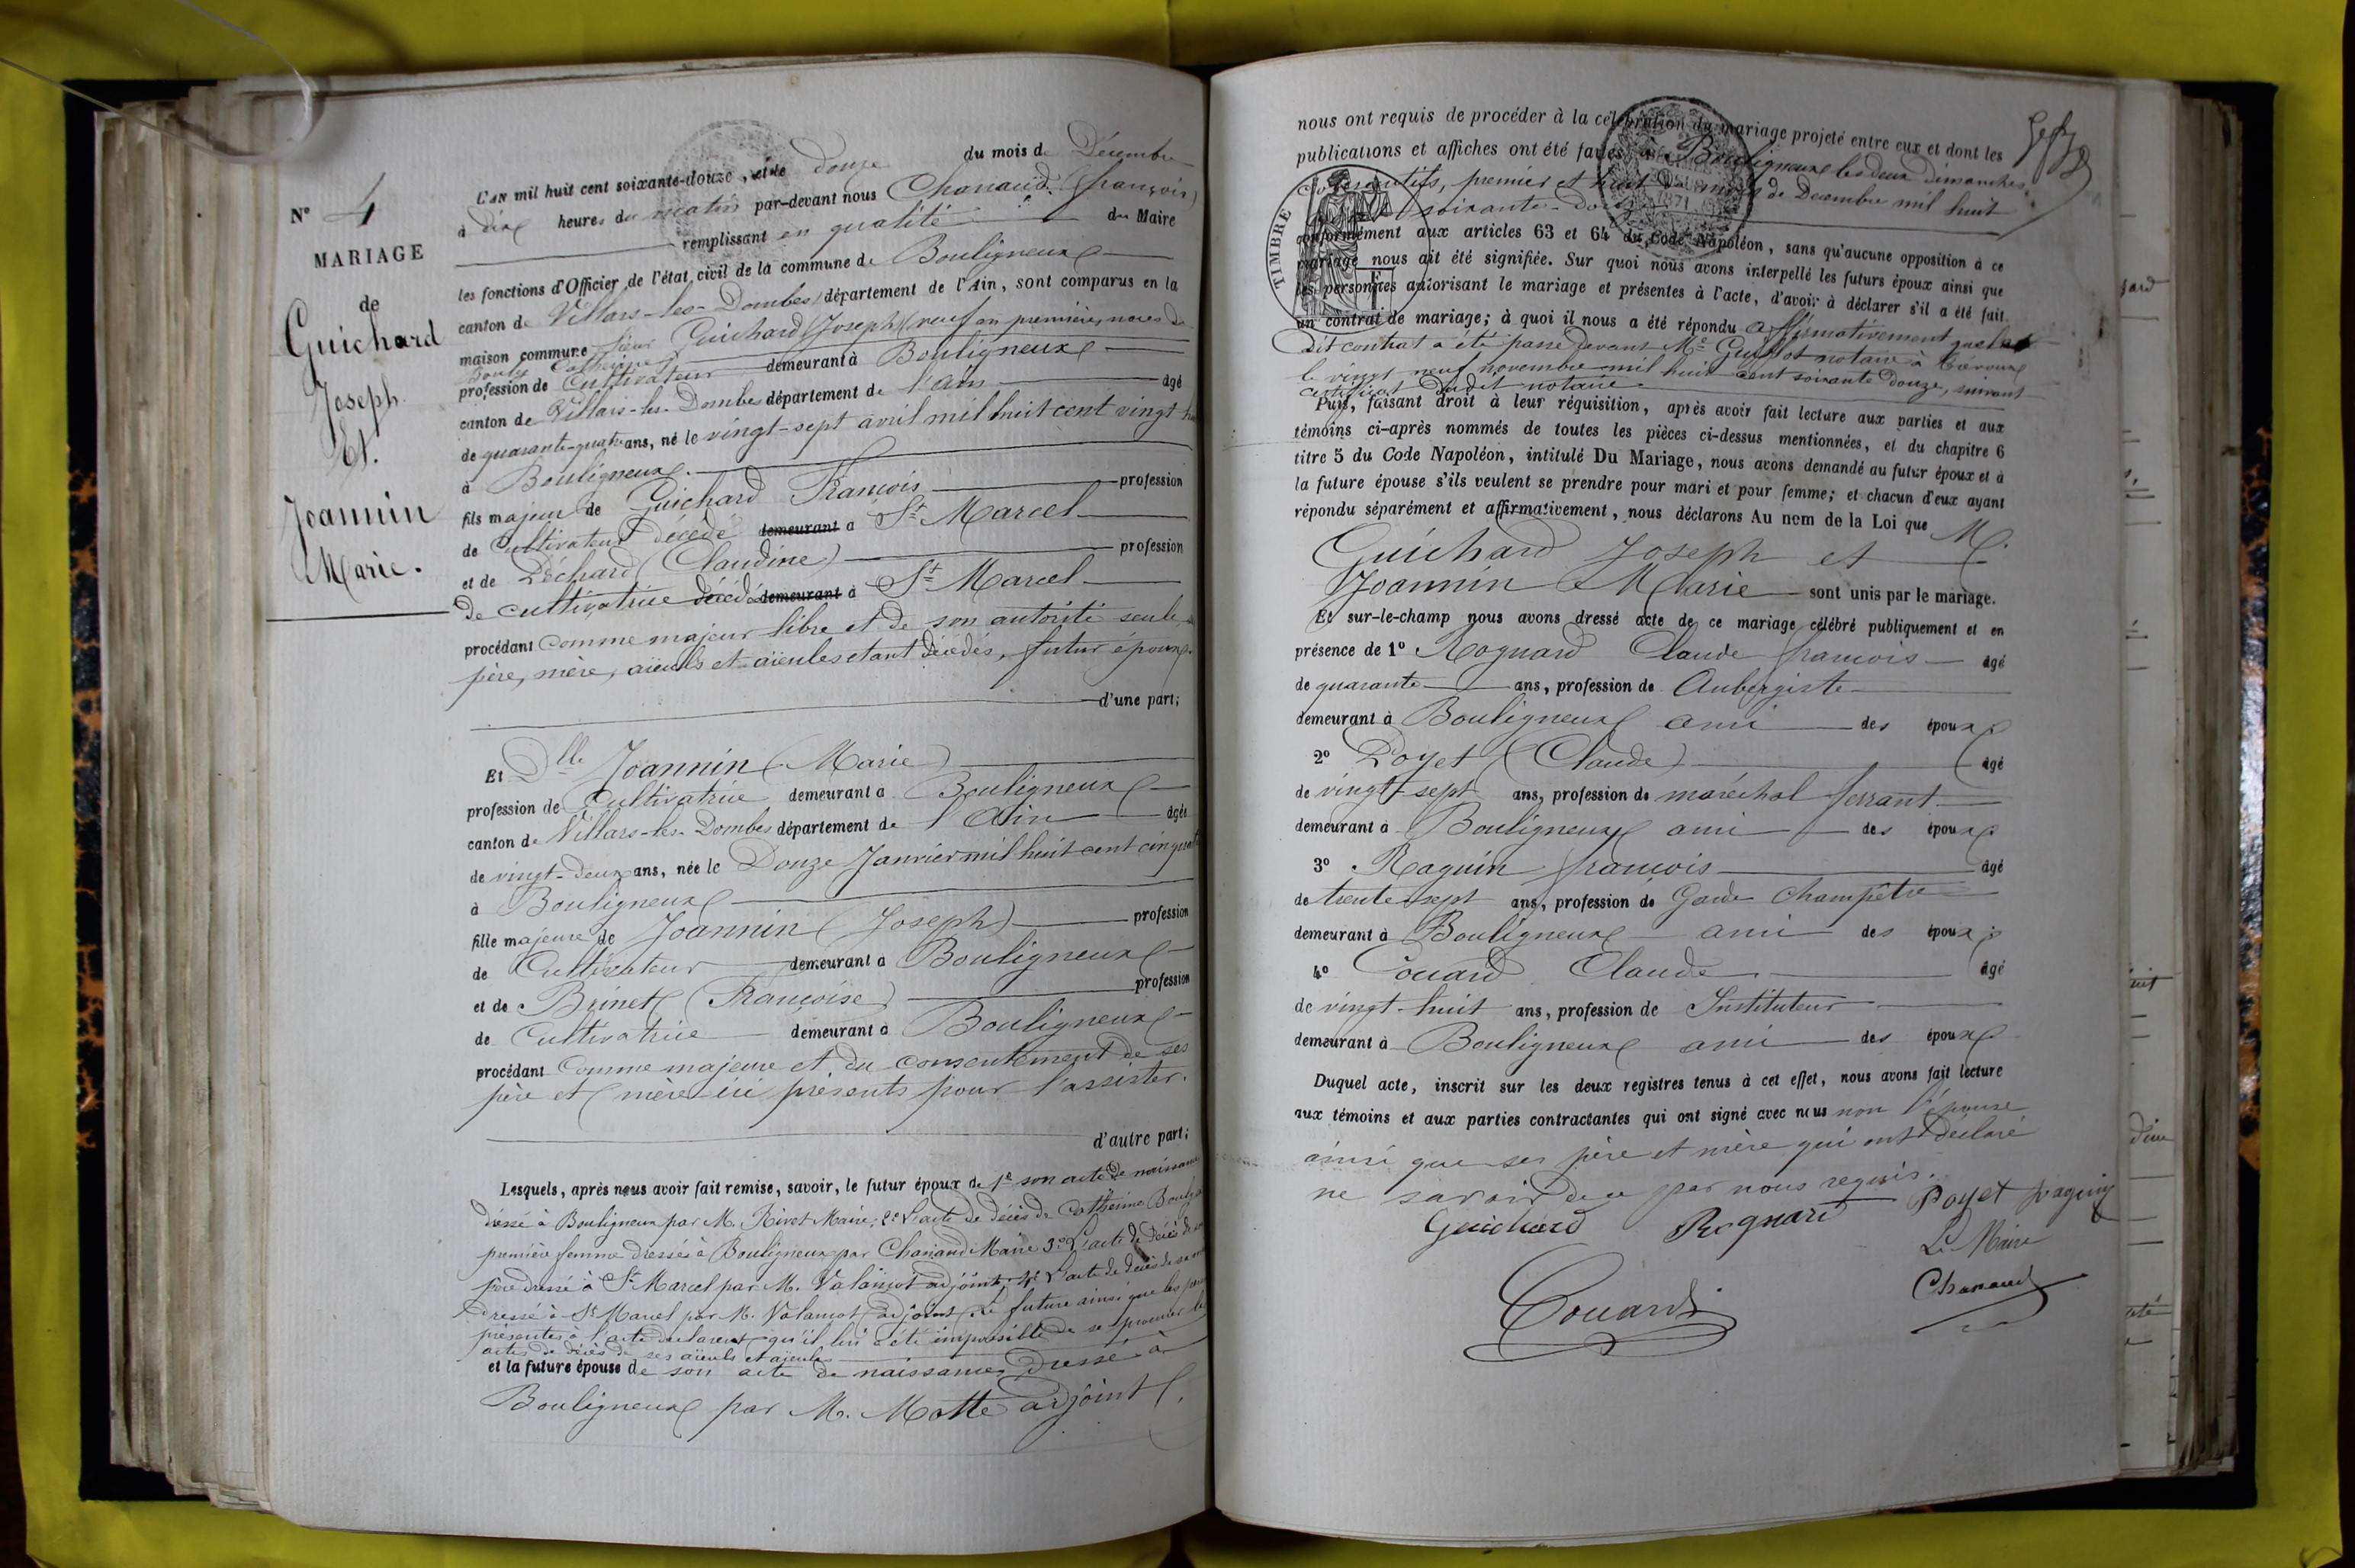 N° 4
MARIAGE
de
Guichard
Joseph
Et.
Joannin
Marie.
L'an mil huit cent soixante-douze, et le douze du mois de Décembre
à dix heures du matin par-devant nous Chanaud (françois)
remplissant en qualité du Maire
les fonctions d'Officier de l'état civil de la commune de Bouligneux
canton de Villars-les-Dombes département de l'Ain, sont comparus en la
maison commune sieur Guichard (Joseph) veuf en premières noces de
Catherine
profession de Cultivateur demeurant à Bouligneux
canton de Villars-les-Dombes département de l'Ain âgé
de quarante-quatre ans, né le vingt-sept avril mil huit cent vingt
à Bouligneux.
fils majeur de Guichard François profession
de Cultivateur décédé demeurant à St Marcel
et de Déchard (Claudine) profession
de cultivatrice décédé demeurant à St Marcel
procédant comme majeur libre et de son autorité seule
père, mère, aïeuls et aïeules etant décédés, futur époux
d'une part;
Et Dlle Joannin (Marie)
profession de Cultivatrice demeurant à Bouligneux
canton de Villars-les-Dombes département de l'Ain âgée
de vingt-deux ans, née le Douze Janvier mil huit cent cinquante
à Bouligneux
fille majeure de Joannin (Joseph) profession
de Cultivateur demeurant à Bouligneux
et de Brinet (Françoise) profession
de Cultivatrice demeurant à Bouligneux
procédant comme majeure et du consentement de ses
père et mère ici présents pour l'assister.
d'autre part;
Lesquels, après nous avoir fait remise, savoir, le futur époux de 1° son acte de naissance
dressé à Bouligneux par M. Rivet Maire; 2° L'acte de décès de Cathérine
première femme dressé à Bouligneux par Chanaud Maire 3° L'acte de décès de son
père dressé à St Marcel par M. Valamot adjoint; 4° L'acte de décès de sa mère
dressé à St Marcel par M. Valamot adjoint. Le future ainsi que les
présentes à l'acte déclarent qu'il lui a été impossible de se procurer les
actes de décès de ses aïeuls et aïeules
et la future épouse de son acte de naissance dressé à
Bouligneux par M. Motte adjoint.
nous ont requis de procéder à la célébration du mariage projeté entre eux et dont les
publications et affiches ont été faites à Bouligneux les deux dimanches
consécutifs, premier et huit du mois de Decembre mil huit
cent soixante-douze
conformément aux articles 63 et 64 du Code Napoléon, sans qu'aucune opposition à ce
mariage nous ait été signifiée. Sur quoi nous avons interpellé les futurs époux ainsi que
les personnes autorisant le mariage et présentes à l'acte, d'avoir à déclarer s'il a été fait
un contrat de mariage; à quoi il nous a été répondu affirmativement que le
dit contrat a été passé devant Me Guillot notaire à Trévoux
le vingt neuf novembre mil huit cent soixante douze, suivant
certificat dudit notaire
Puis, faisant droit à leur réquisition, après avoir fait lecture aux parties et aux
témoins ci-après nommés de toutes les pièces ci-dessus mentionnées, et du chapitre 6
titre 5 du Code Napoléon, intitulé Du Mariage, nous avons demandé au futur époux et à
la future épouse s'ils veulent se prendre pour mari et pour femme; et chacun d'eux ayant
répondu séparément et affirmativement, nous déclarons Au nom de la Loi que M.
Guichard Joseph et
Joannin Marie sont unis par le mariage.
Et sur-le-champ nous avons dressé acte de ce mariage célébré publiquement et en
présence de 1° Rognard Claude françois âgé
de quarante ans, profession de Aubergiste
demeurant à Bouligneux ami des époux
2° Poyet (Claude) âgé
de vingt-sept ans, profession de maréchal ferrant
demeurant à Bouligneux ami des époux
3° Raguin françois âgé
de trente sept ans, profession de Garde Champêtre
demeurant à Bouligneux ami des époux
4° Couard Claude âgé
de vingt-huit ans, profession de Instituteur
demeurant à Bouligneux ami des époux
Duquel acte, inscrit sur les deux registres tenus à cet effet, nous avons fait lecture
aux témoins et aux parties contractantes qui ont signé avec nous non l'épouse
ainsi que ses père et mère qui ont déclaré
ne savoir de ce par nous requis.
Guichard Rognard Poyet Raguin
Le Maire
Couard Chanaud
TIMBRE